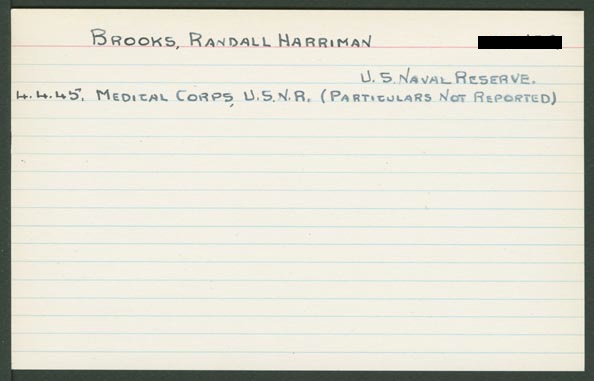 BROOKS, RANDALL HARRIMAN
U.S. NAVAL RESERVE.
4.4.45. MEDICAL CORPS, U.S.N.R. (PARTICULARS NOT REPORTED)